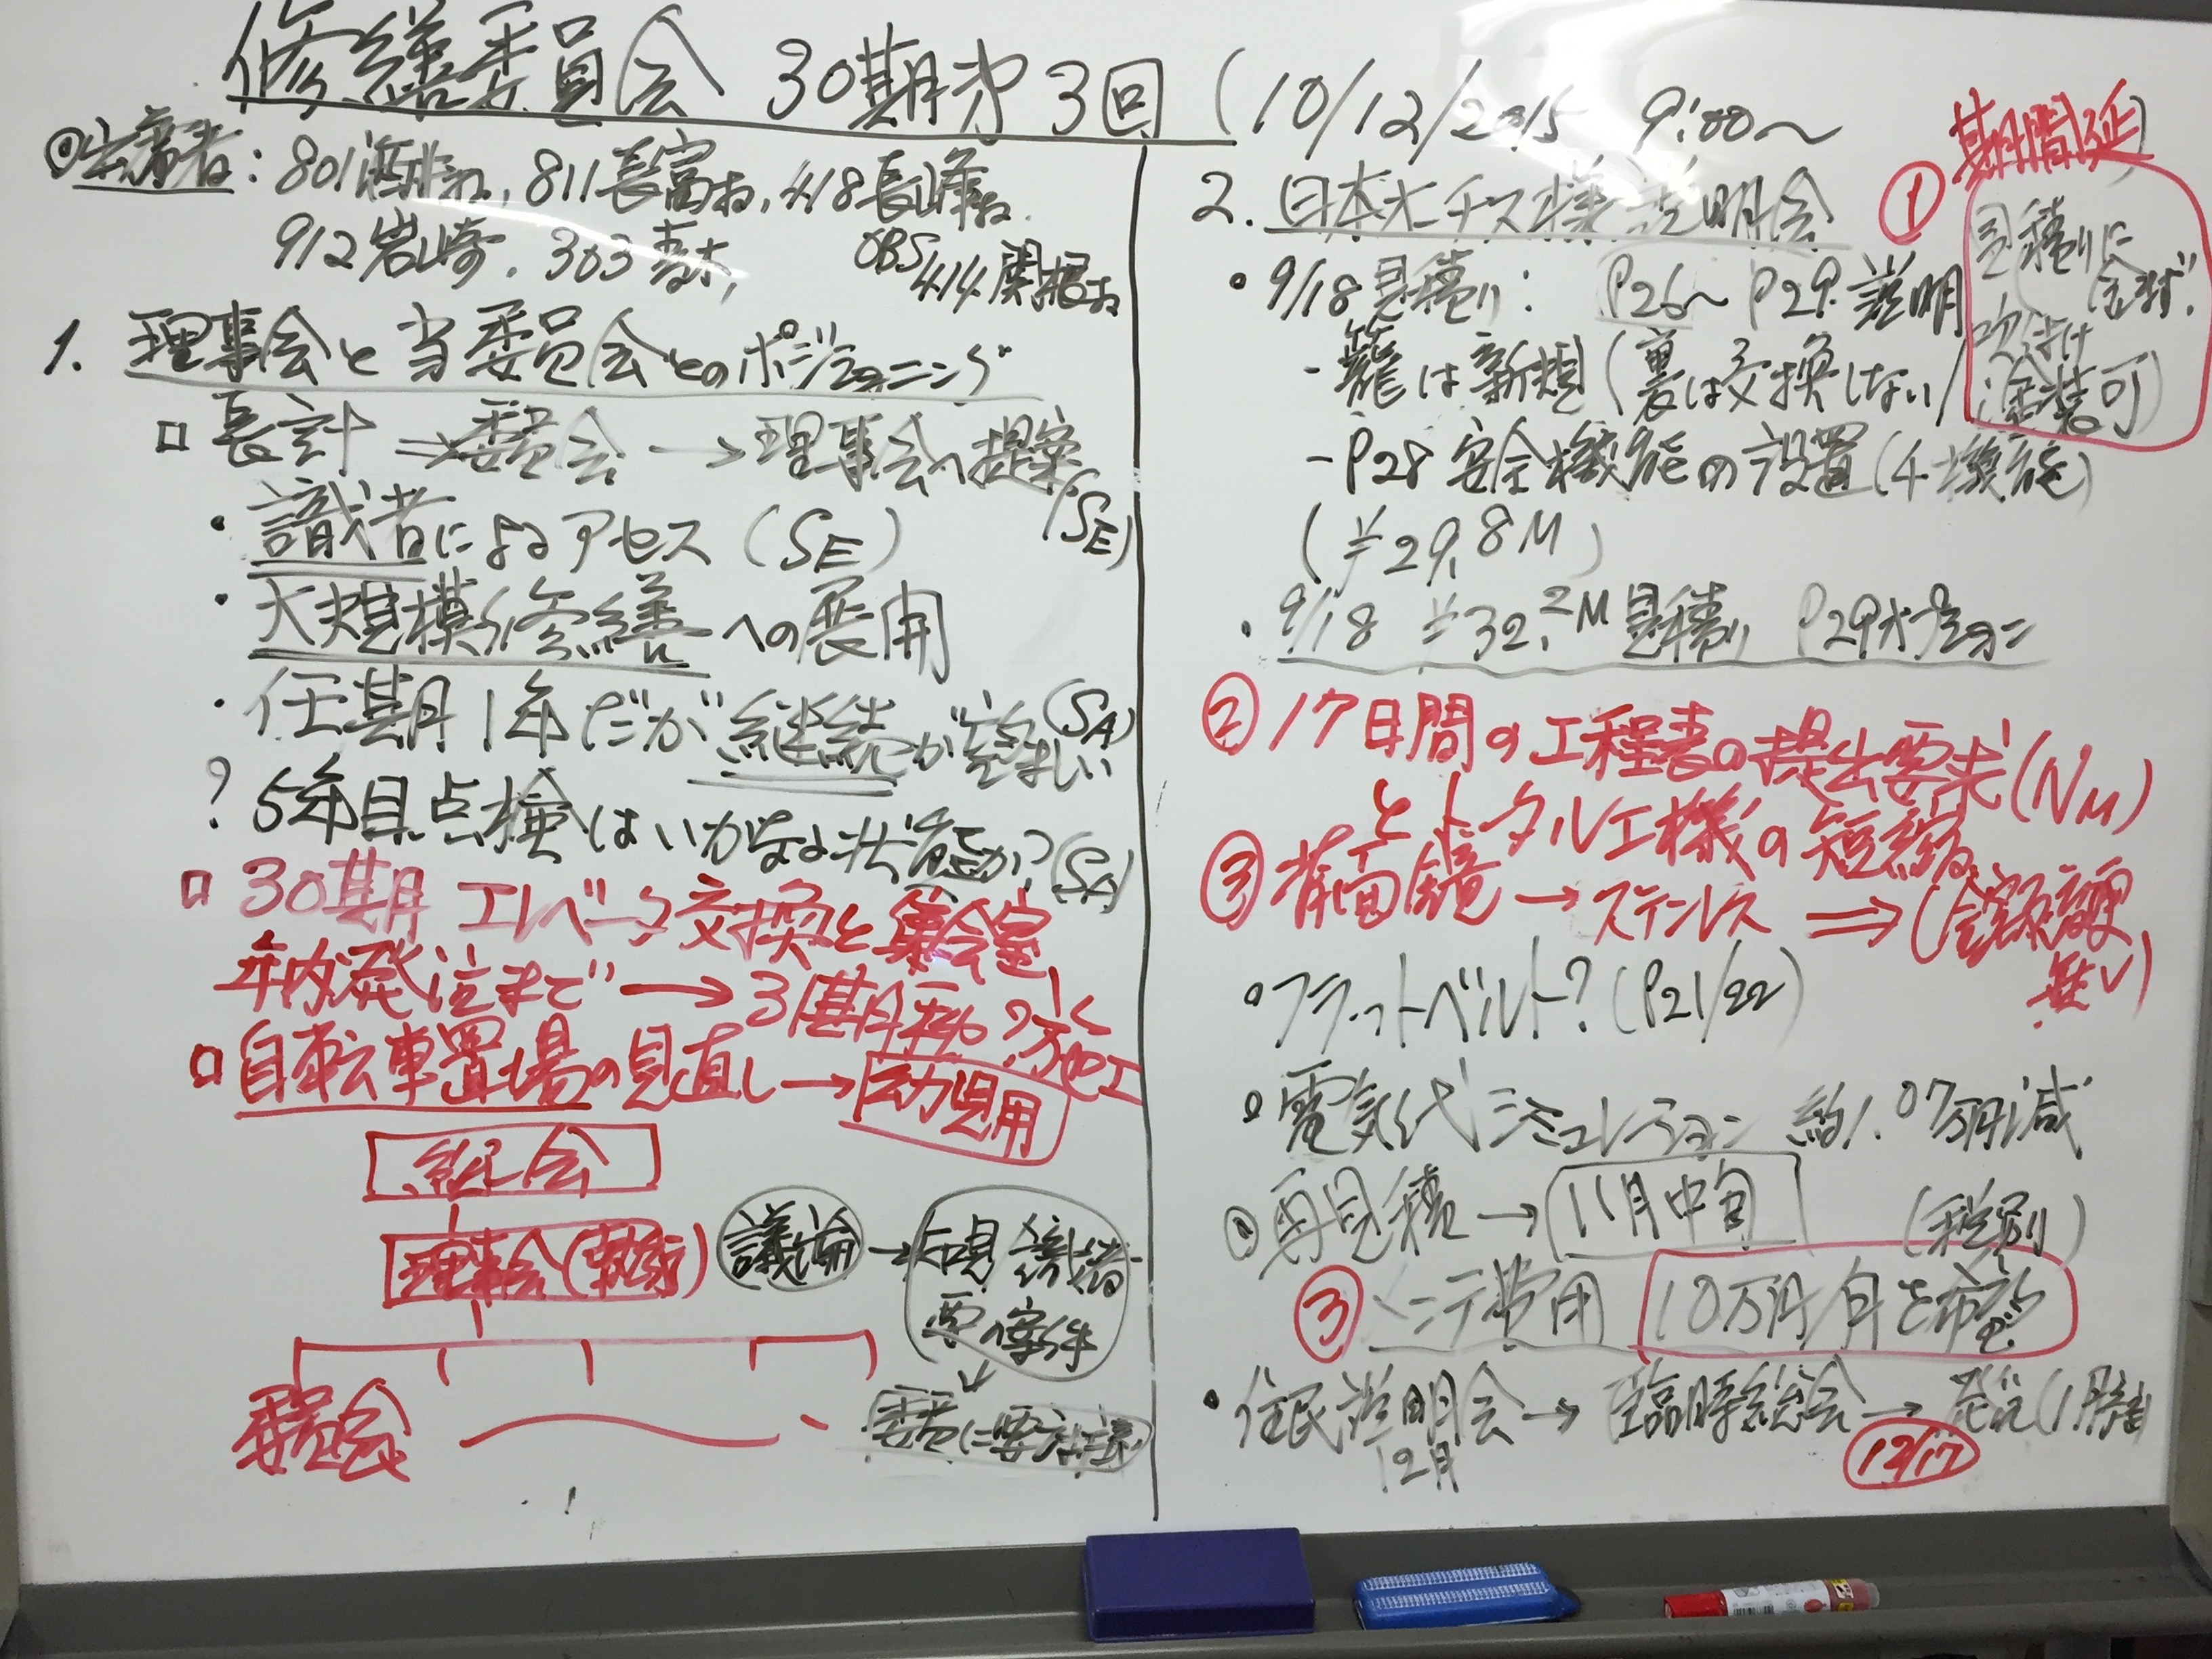 修繕委員会 30期第3回 (10/12/2015 9:00〜
◎出席者: 801酒井さん, 811長富さん, 418長峰さん
912岩崎, 303青木, OBS 414関根さん
1. 理事会と当委員会とのポジショニング
□ 長計 ⇒ 委員会 → 理事会へ提案 (SE)
・識者によるアセス (SE)
・大規模修繕への展開
・任期1年だが継続が望ましい (SA)
? 5年目点検はいかなる状態か? (SA)
□ 30期 エレベータ交換と集会室
年内発注まで → 31期 施工
□ 自転車置場の見直し → 幼児用
総会
理事会(執行) 議論 → 知見 識者
要の案件
↓
委員会 委員会に要請
2. 日本オーチス様説明会
・9/18見積り: P26〜P29説明
- 籠は新規 (裏は交換しない/
① 期間延
見積りに
含まず。
吹付け
塗装可)
- P28 安全機能の設置 (4機能)
(¥29.8M)
・9/18 ¥32.2M見積り P29オプション
② 17日間の工程表の提出要求 (NM)
とトータル工機の短縮
③ 背面鏡 → ステンレス ⇒ (金額変更
無し)
・フラットベルト? (P21/22)
・電気代シミュレーション 約1.07万円減
◎再見積 → 11月中旬 (税別)
③ メンテ費用 10万円/月を希望
・住民説明会 → 臨時総会 → 発注 (1月
12月 12/17